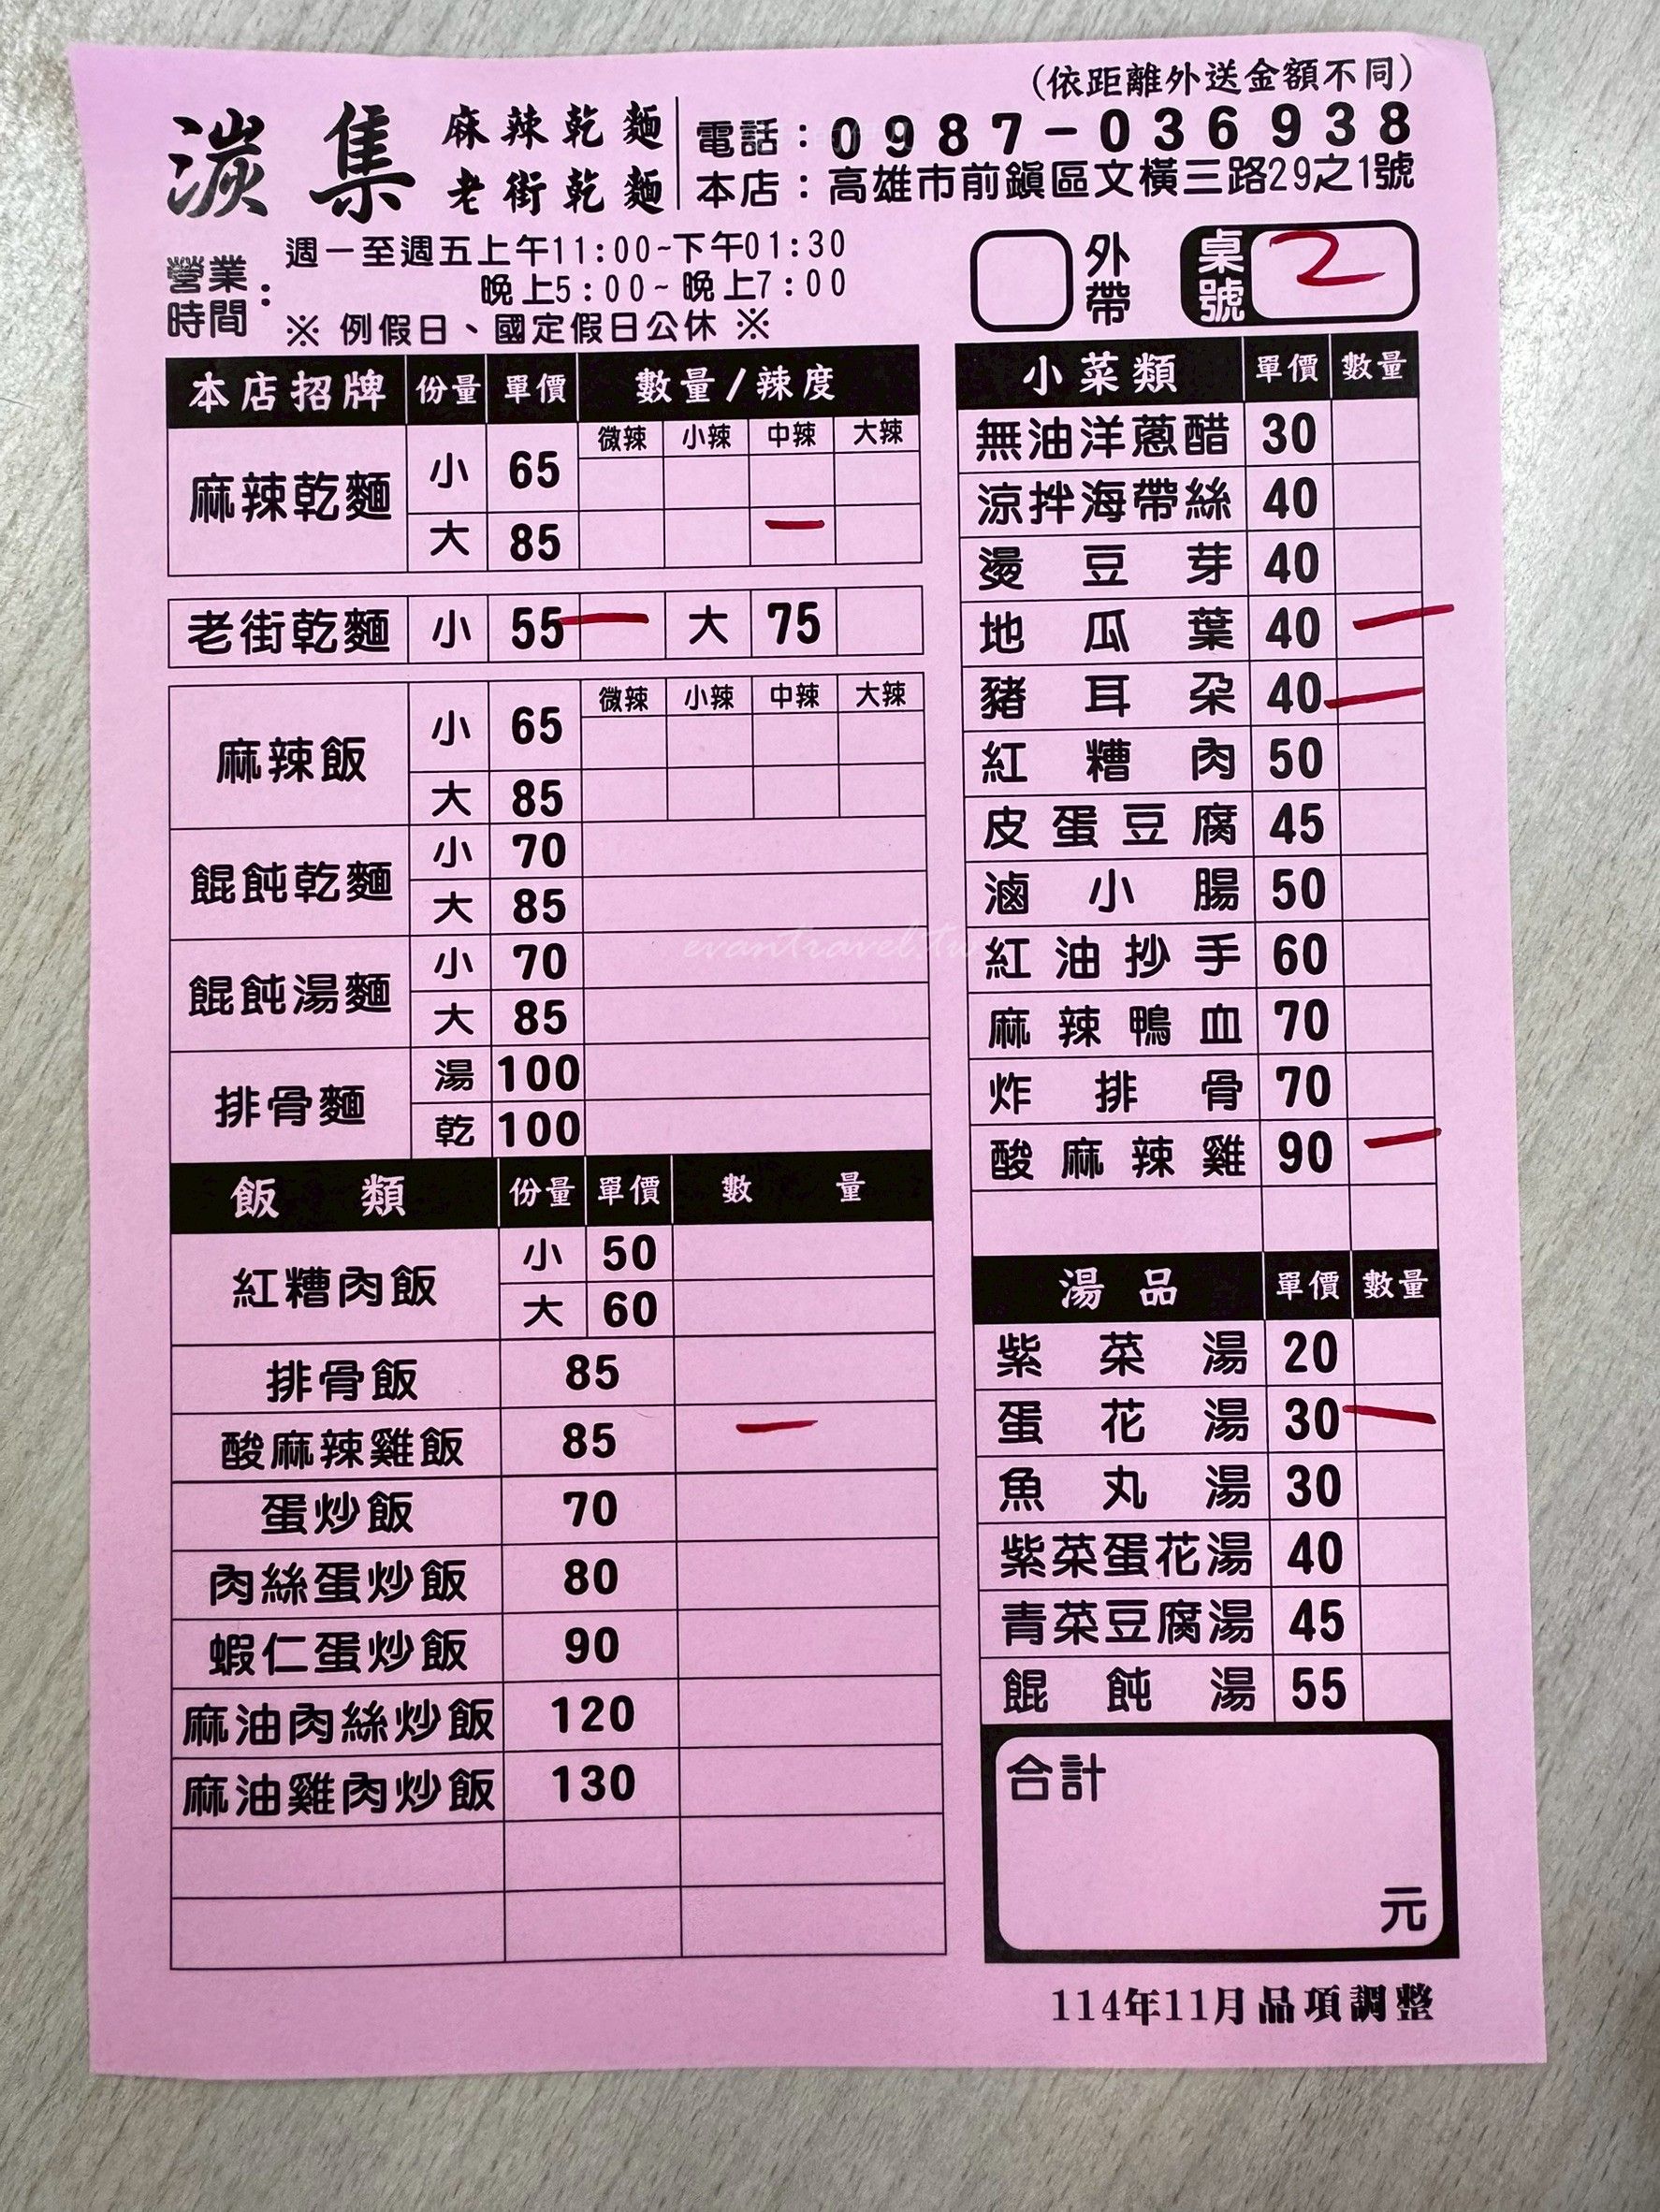 (依距離外送金額不同)
漃集 麻辣乾麵 老街乾麵
電話：0987-036938
本店：高雄市前鎮區文橫三路29之1號
營業時間：週一至週五上午11:00~下午01:30
晚上5:00~晚上7:00
※ 例假日、國定假日公休 ※
外帶 桌號 2
本店招牌 份量 單價 數量/辣度
微辣 小辣 中辣 大辣
麻辣乾麵 小 65
大 85 一
老街乾麵 小 55 一 大 75
微辣 小辣 中辣 大辣
麻辣飯 小 65
大 85
餛飩乾麵 小 70
大 85
餛飩湯麵 小 70
大 85
排骨麵 湯 100
乾 100
飯類 份量 單價 數量
紅糟肉飯 小 50
大 60
排骨飯 85
酸麻辣雞飯 85 一
蛋炒飯 70
肉絲蛋炒飯 80
蝦仁蛋炒飯 90
麻油肉絲炒飯 120
麻油雞肉炒飯 130
小菜類 單價 數量
無油洋蔥醋 30
涼拌海帶絲 40
燙豆芽 40
地瓜葉 40 一
豬耳朵 40 一
紅糟肉 50
皮蛋豆腐 45
滷小腸 50
紅油抄手 60
麻辣鴨血 70
炸排骨 70
酸麻辣雞 90 一
湯品 單價 數量
紫菜湯 20
蛋花湯 30 一
魚丸湯 30
紫菜蛋花湯 40
青菜豆腐湯 45
餛飩湯 55
合計
元
114年11月品項調整
evantravel.tw